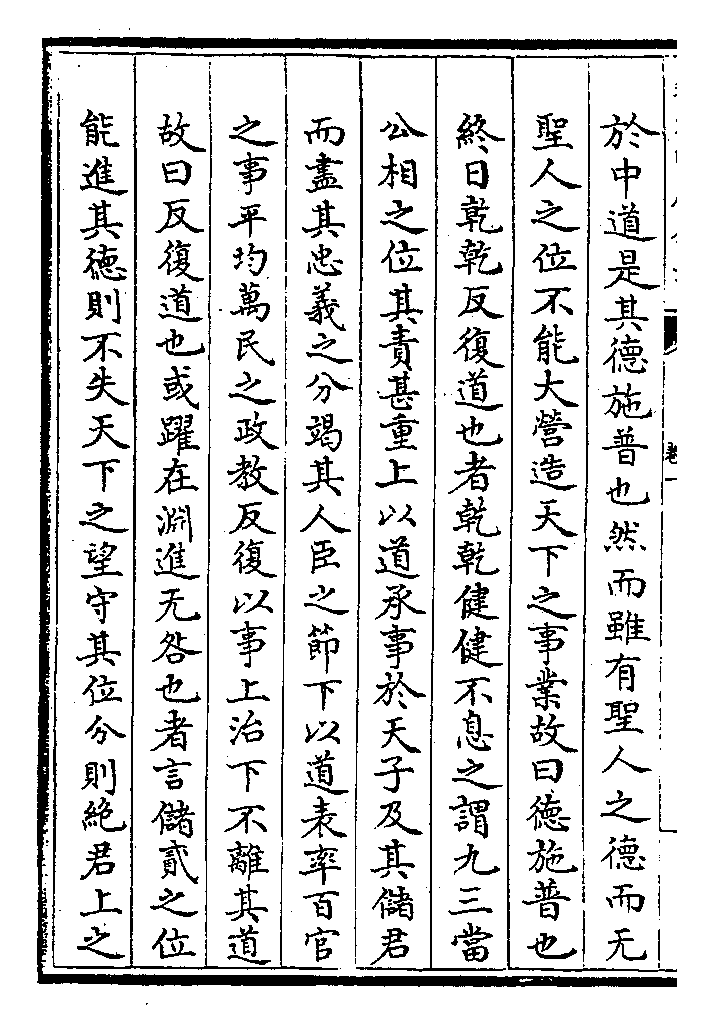 於中道是其德施普也然而雖有聖人之德而无
聖人之位不能大營造天下之事業故曰德施普也
終日乾乾反復道也者乾乾健健不息之謂九三當
公相之位其責甚重上以道承事於天子及其儲君
而盡其忠義之分竭其人臣之節下以道表率百官
之事平均萬民之政教反復以事上治下不離其道
故曰反復道也或躍在淵進无咎也者言儲貳之位
能進其德則不失天下之望守其位分則絶君上之